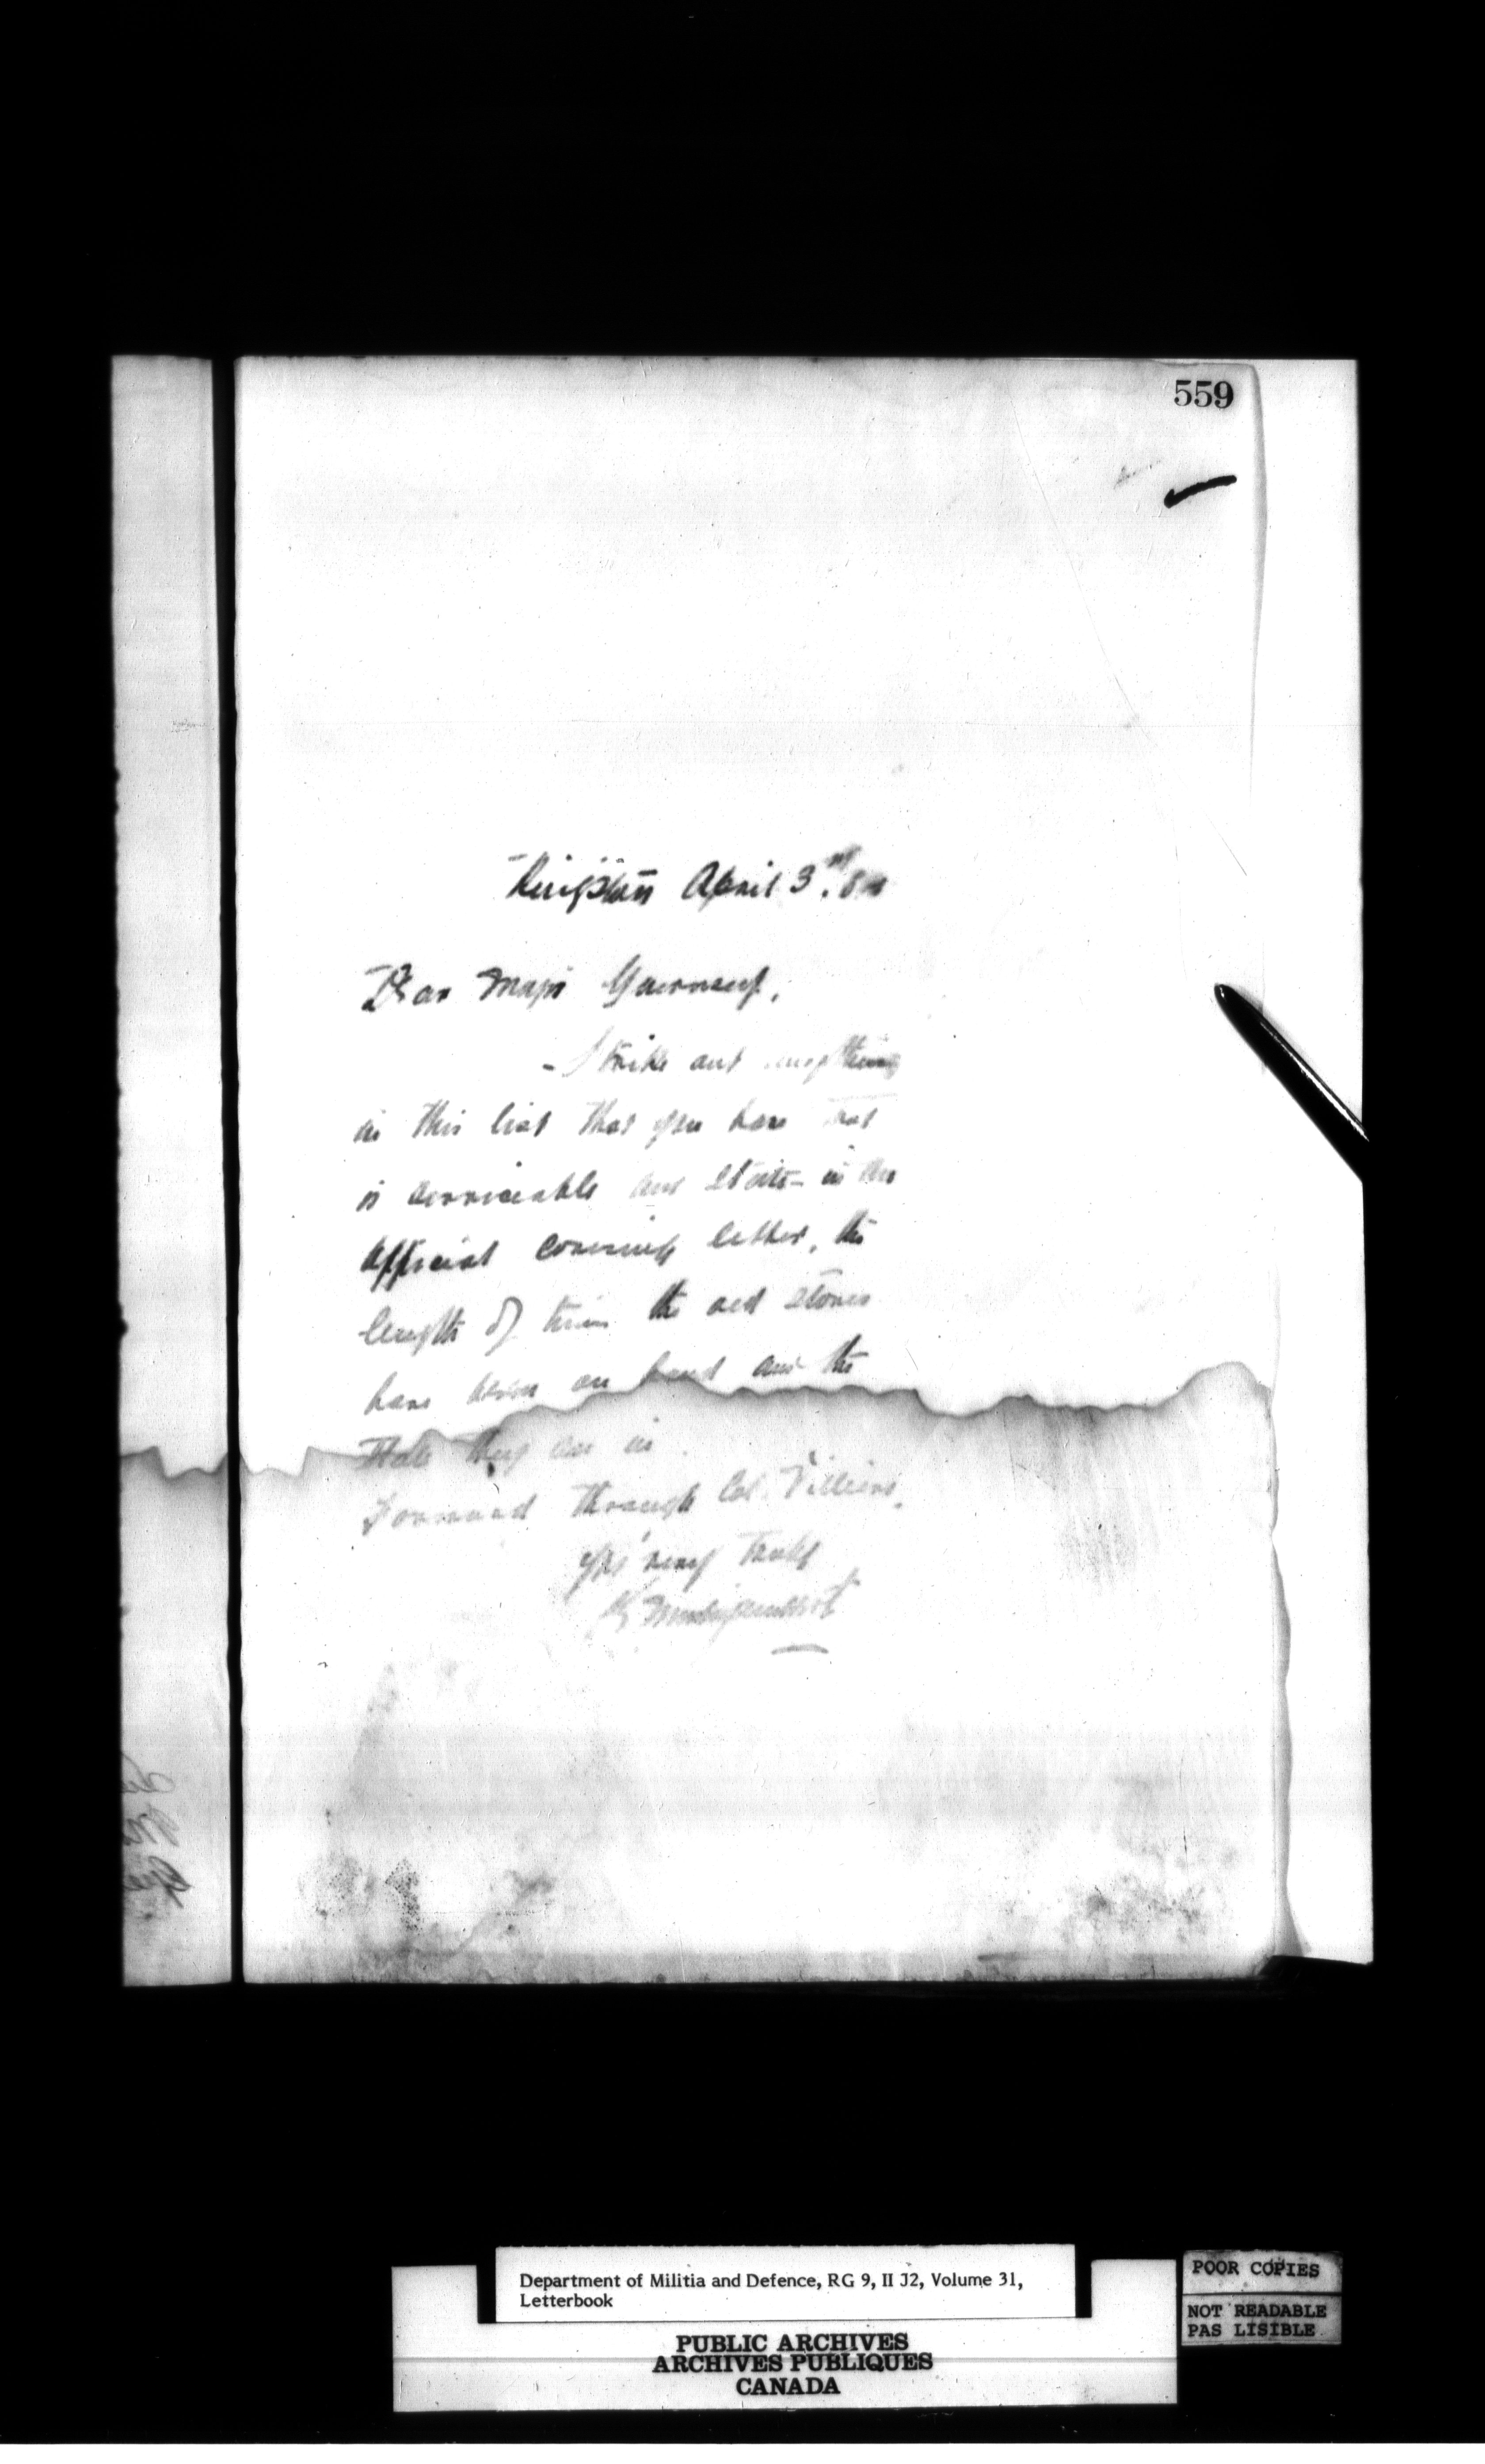 559
Kingston April 3rd
Dear Major
Strike out anything
in this list that you have that
is serviceable and state in an
official covering letter, the
length of time the old stoves
have been on hand and the
State they are in
Forward through Col. Villiers.
yrs very truly
Department of Militia and Defence, RG 9, II J2, Volume 31,
Letterbook
PUBLIC ARCHIVES
ARCHIVES PUBLIQUES
CANADA
POOR COPIES
NOT READABLE
PAS LISIBLE